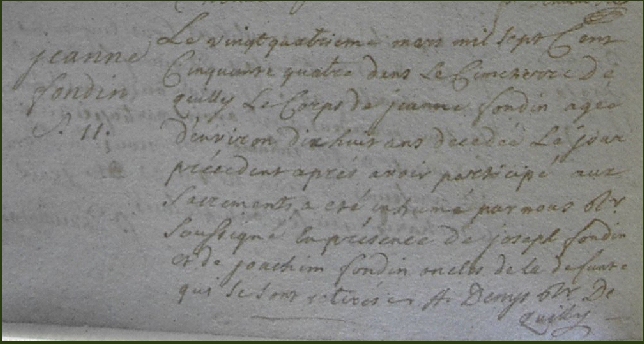 jeanne
fondin
S. 11.
Le vingt quatrieme mars mil sept Cent
Cinquante quatre dans Le Cimeterre de
quilly Le Corps de jeanne fondin agée
d'environ dix huit ans decedée Le jour
précédent aprés avoir participé aux
Sacrements, a eté inhumé par nous
Soussigné En présence de joseph fondin
et de joachim fondin oncles de la defunte
qui se sont retirés Denys De
Quilly